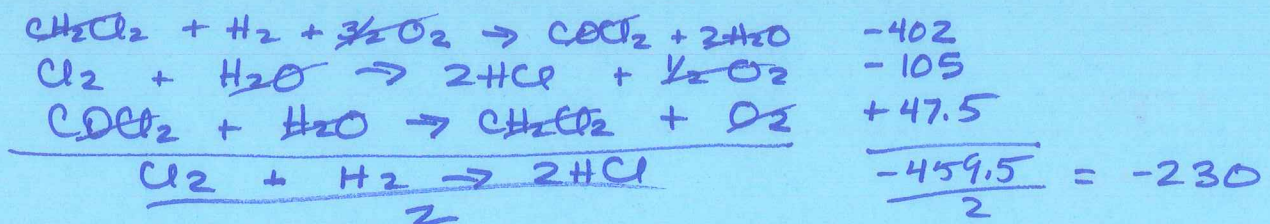 CH2Cl2 + H2 + 3/2 O2 → COCl2 + 2H2O -402
Cl2 + H2O → 2HCl + 1/2 O2 -105
COCl2 + H2O → CH2Cl2 + O2 +47.5
Cl2 + H2 → 2HCl -459.5 = -230
2 2